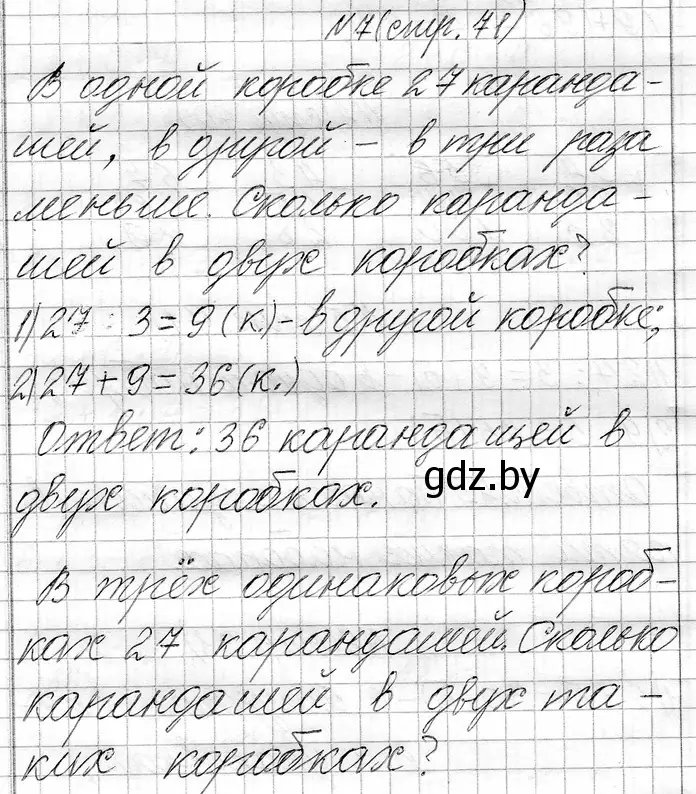 №7(стр. 71)
В одной коробке 27 каранда-
шей, в другой – в три раза
меньше. Сколько каранда-
шей в двух коробках?
1) 27 : 3 = 9 (к.) - в другой коробке;
2) 27 + 9 = 36 (к.)
Ответ: 36 карандашей в
двух коробках.
gdz.by
В трёх одинаковых короб-
ках 27 карандашей. Сколько
карандашей в двух та-
ких коробках?